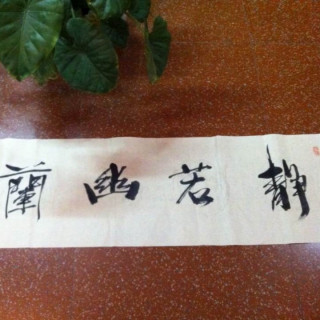 靜若幽蘭